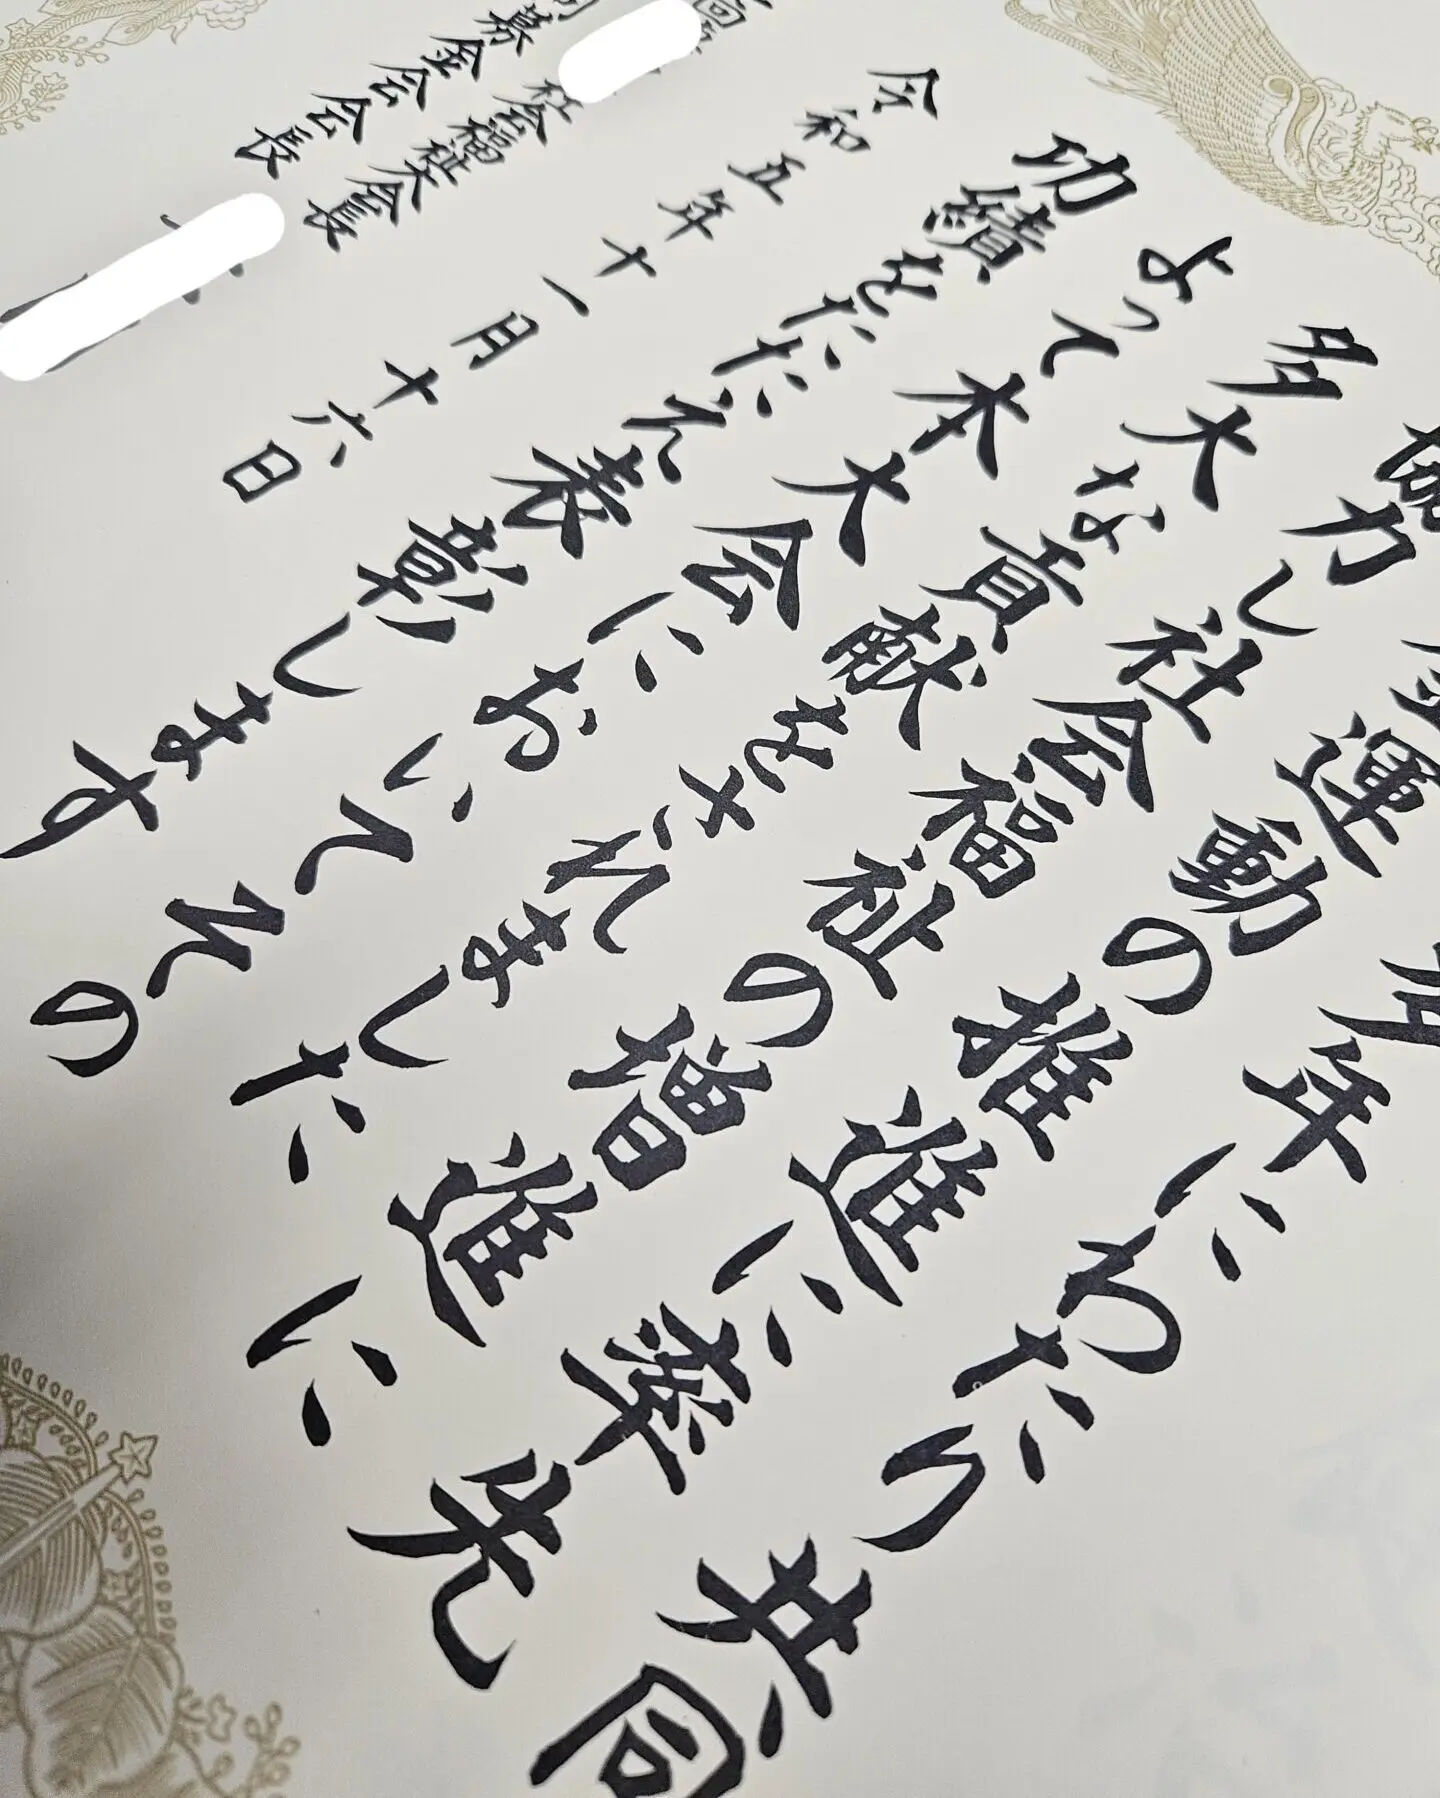 多年にわたり共同
金運動の推進に率先
協力し社会福祉の増進に
多大な貢献をされました
よって本大会においてその
功績をたたえ表彰します
令和五年十一月十六日
社会福祉大会長
募金会会長